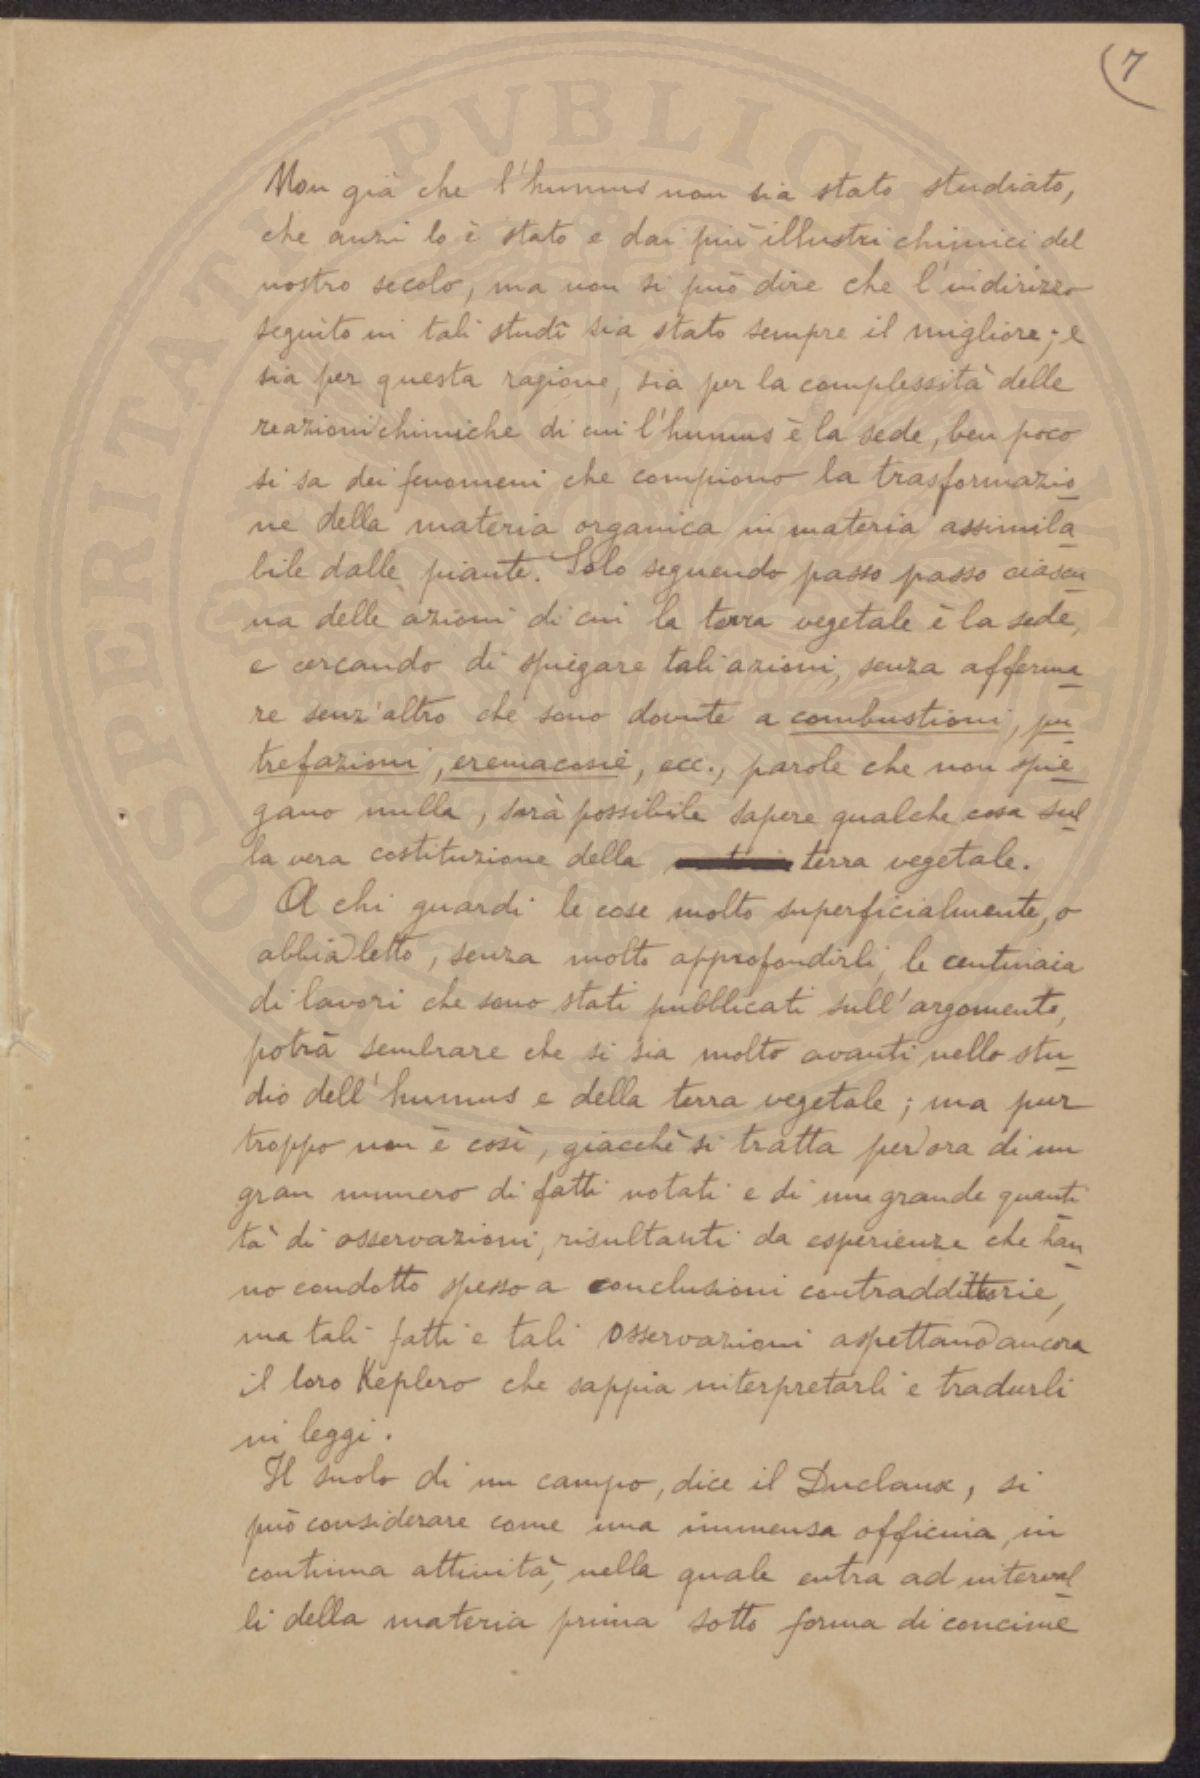 (7
Non già che l'humus non sia stato studiato,
che anzi lo è stato e dai più illustri chimici del
nostro secolo, ma non si può dire che l'indirizzo
seguito in tali studî sia stato sempre il migliore; e
sia per questa ragione, sia per la complessità delle
reazioni chimiche di cui l'humus è la sede, ben poco
si sa dei fenomeni che compiono la trasformazio
ne della materia organica in materia assimila
bile dalle piante. Solo seguendo passo passo ciascu
na delle azioni di cui la terra vegetale è la sede,
e cercando di spiegare tali azioni, senza afferma
re senz'altro che sono dovute a combustioni, pu
trefazioni, eremacosie, ecc., parole che non spie
gano nulla, sarà possibile sapere qualche cosa sul
la vera costituzione della terra vegetale.
A chi guardi le cose molto superficialmente, o
abbia letto, senza molto approfondirli, le centinaia
di lavori che sono stati pubblicati sull'argomento,
potrà sembrare che si sia molto avanti nello stu
dio dell'humus e della terra vegetale; ma pur
troppo non è così, giacchè si tratta per ora di un
gran numero di fatti notati e di una grande quanti
tà di osservazioni, risultanti da esperienze che han
no condotto spesso a conclusioni contraddittorie,
ma tali fatti e tali osservazioni aspettano ancora
il loro Keplero che sappia interpretarli e tradurli
in leggi.
Il suolo di un campo, dice il Duclaux, si
può considerare come una immensa officina, in
continua attività, nella quale entra ad interval
li della materia prima sotto forma di concime
SPERITATI PVBLICAE